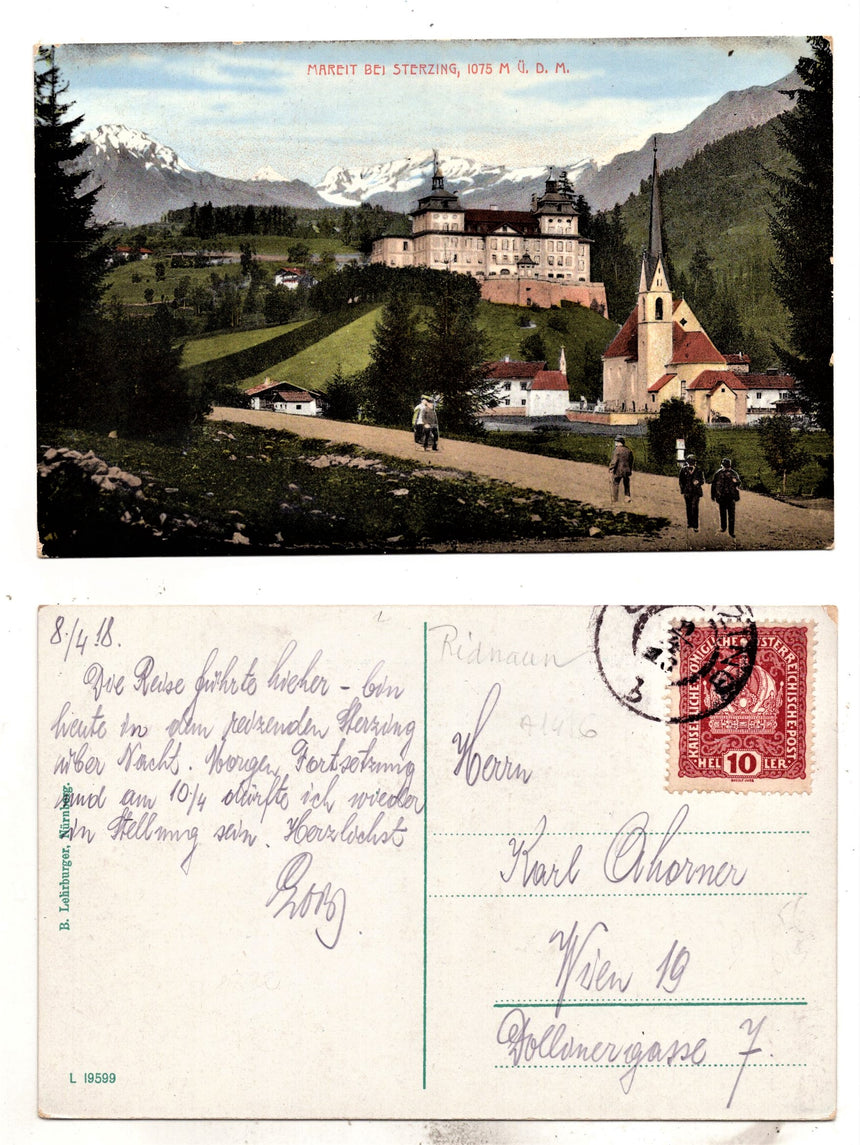 MAREIT BEI STERZING, 1075 M Ü. D. M.
8./4 18.
Die Reise führte hieher – bin
heute in dem reizenden Sterzing
über Nacht. Morgen Fortsetzung
und am 10/4 dürfte ich wieder
in Stellung sein. Herzlichst
B. Lehrburger, Nürnberg.
L 19599
Ridnaun
A1486
KAISERLICHE KÖNIGLICHE ÖSTERREICHISCHE POST
HELLER
10
Herrn
Karl Ahorner
Wien 19
Dollinergasse 7.